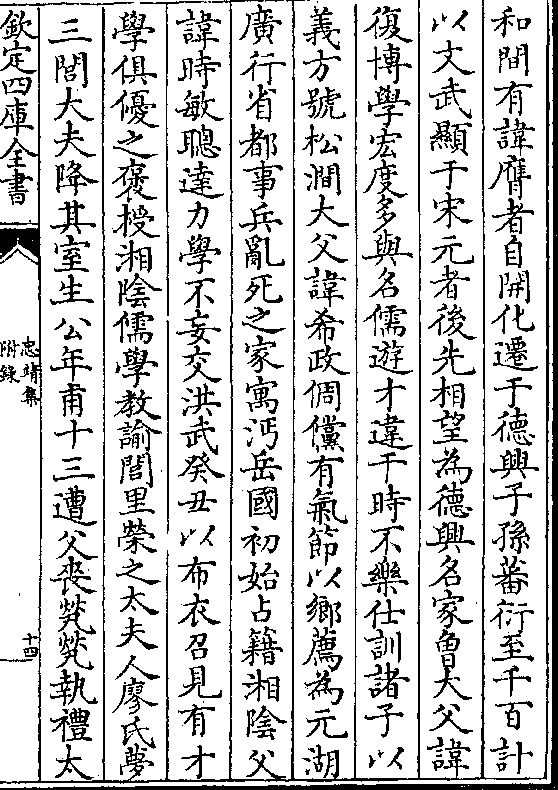 和間有諱膺者自開化遷于德興子孫蕃衍至千百計
以文武顯于宋元者後先相望為德興名家曾大父諱
復博學宏度多與名儒遊才違于時不樂仕訓諸子以
義方號松澗大父諱希政倜儻有氣節以鄉薦為元湖
廣行省都事兵亂死之家寓沔岳國初始占籍湘陰父
諱時敏聰達力學不妄交洪武癸丑以布衣召見有才
學俱優之褒授湘陰儒學教諭閭里榮之太夫人廖氏夢
三閭大夫降其室生公年甫十三遭父喪煢煢執禮太
欽定四庫全書
忠靖集
附錄
十四